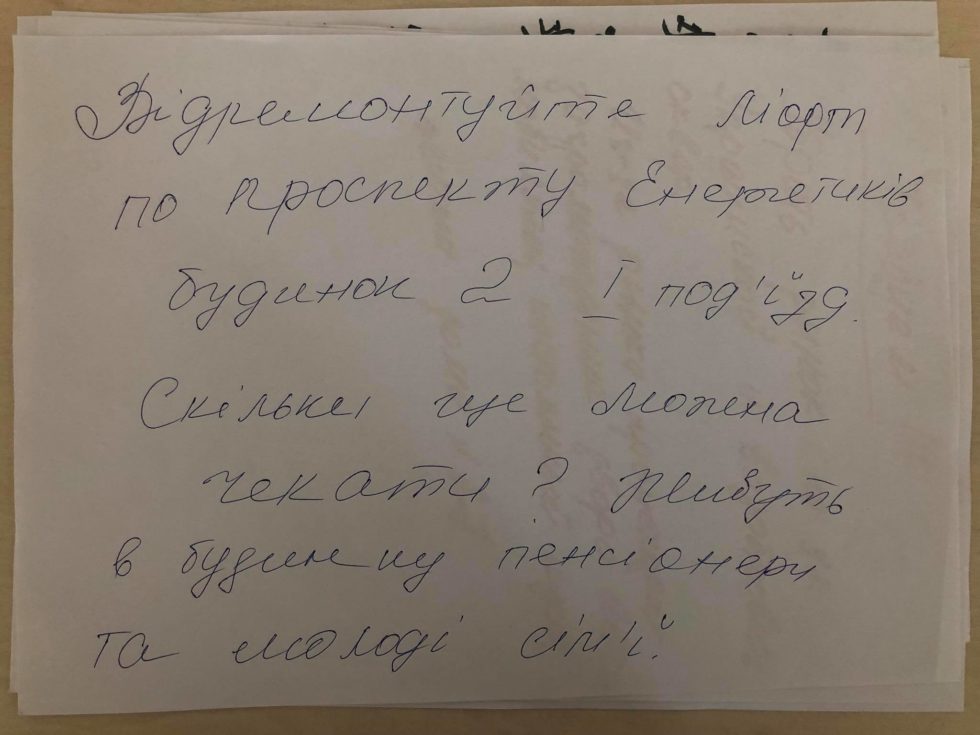 Відремонтуйте ліфт
по проспекту Енергетиків
будинок 2 I под'їзд.
Скільки ще можна
чекати? Живуть
в будинку пенсіонери
та молоді сім'ї.